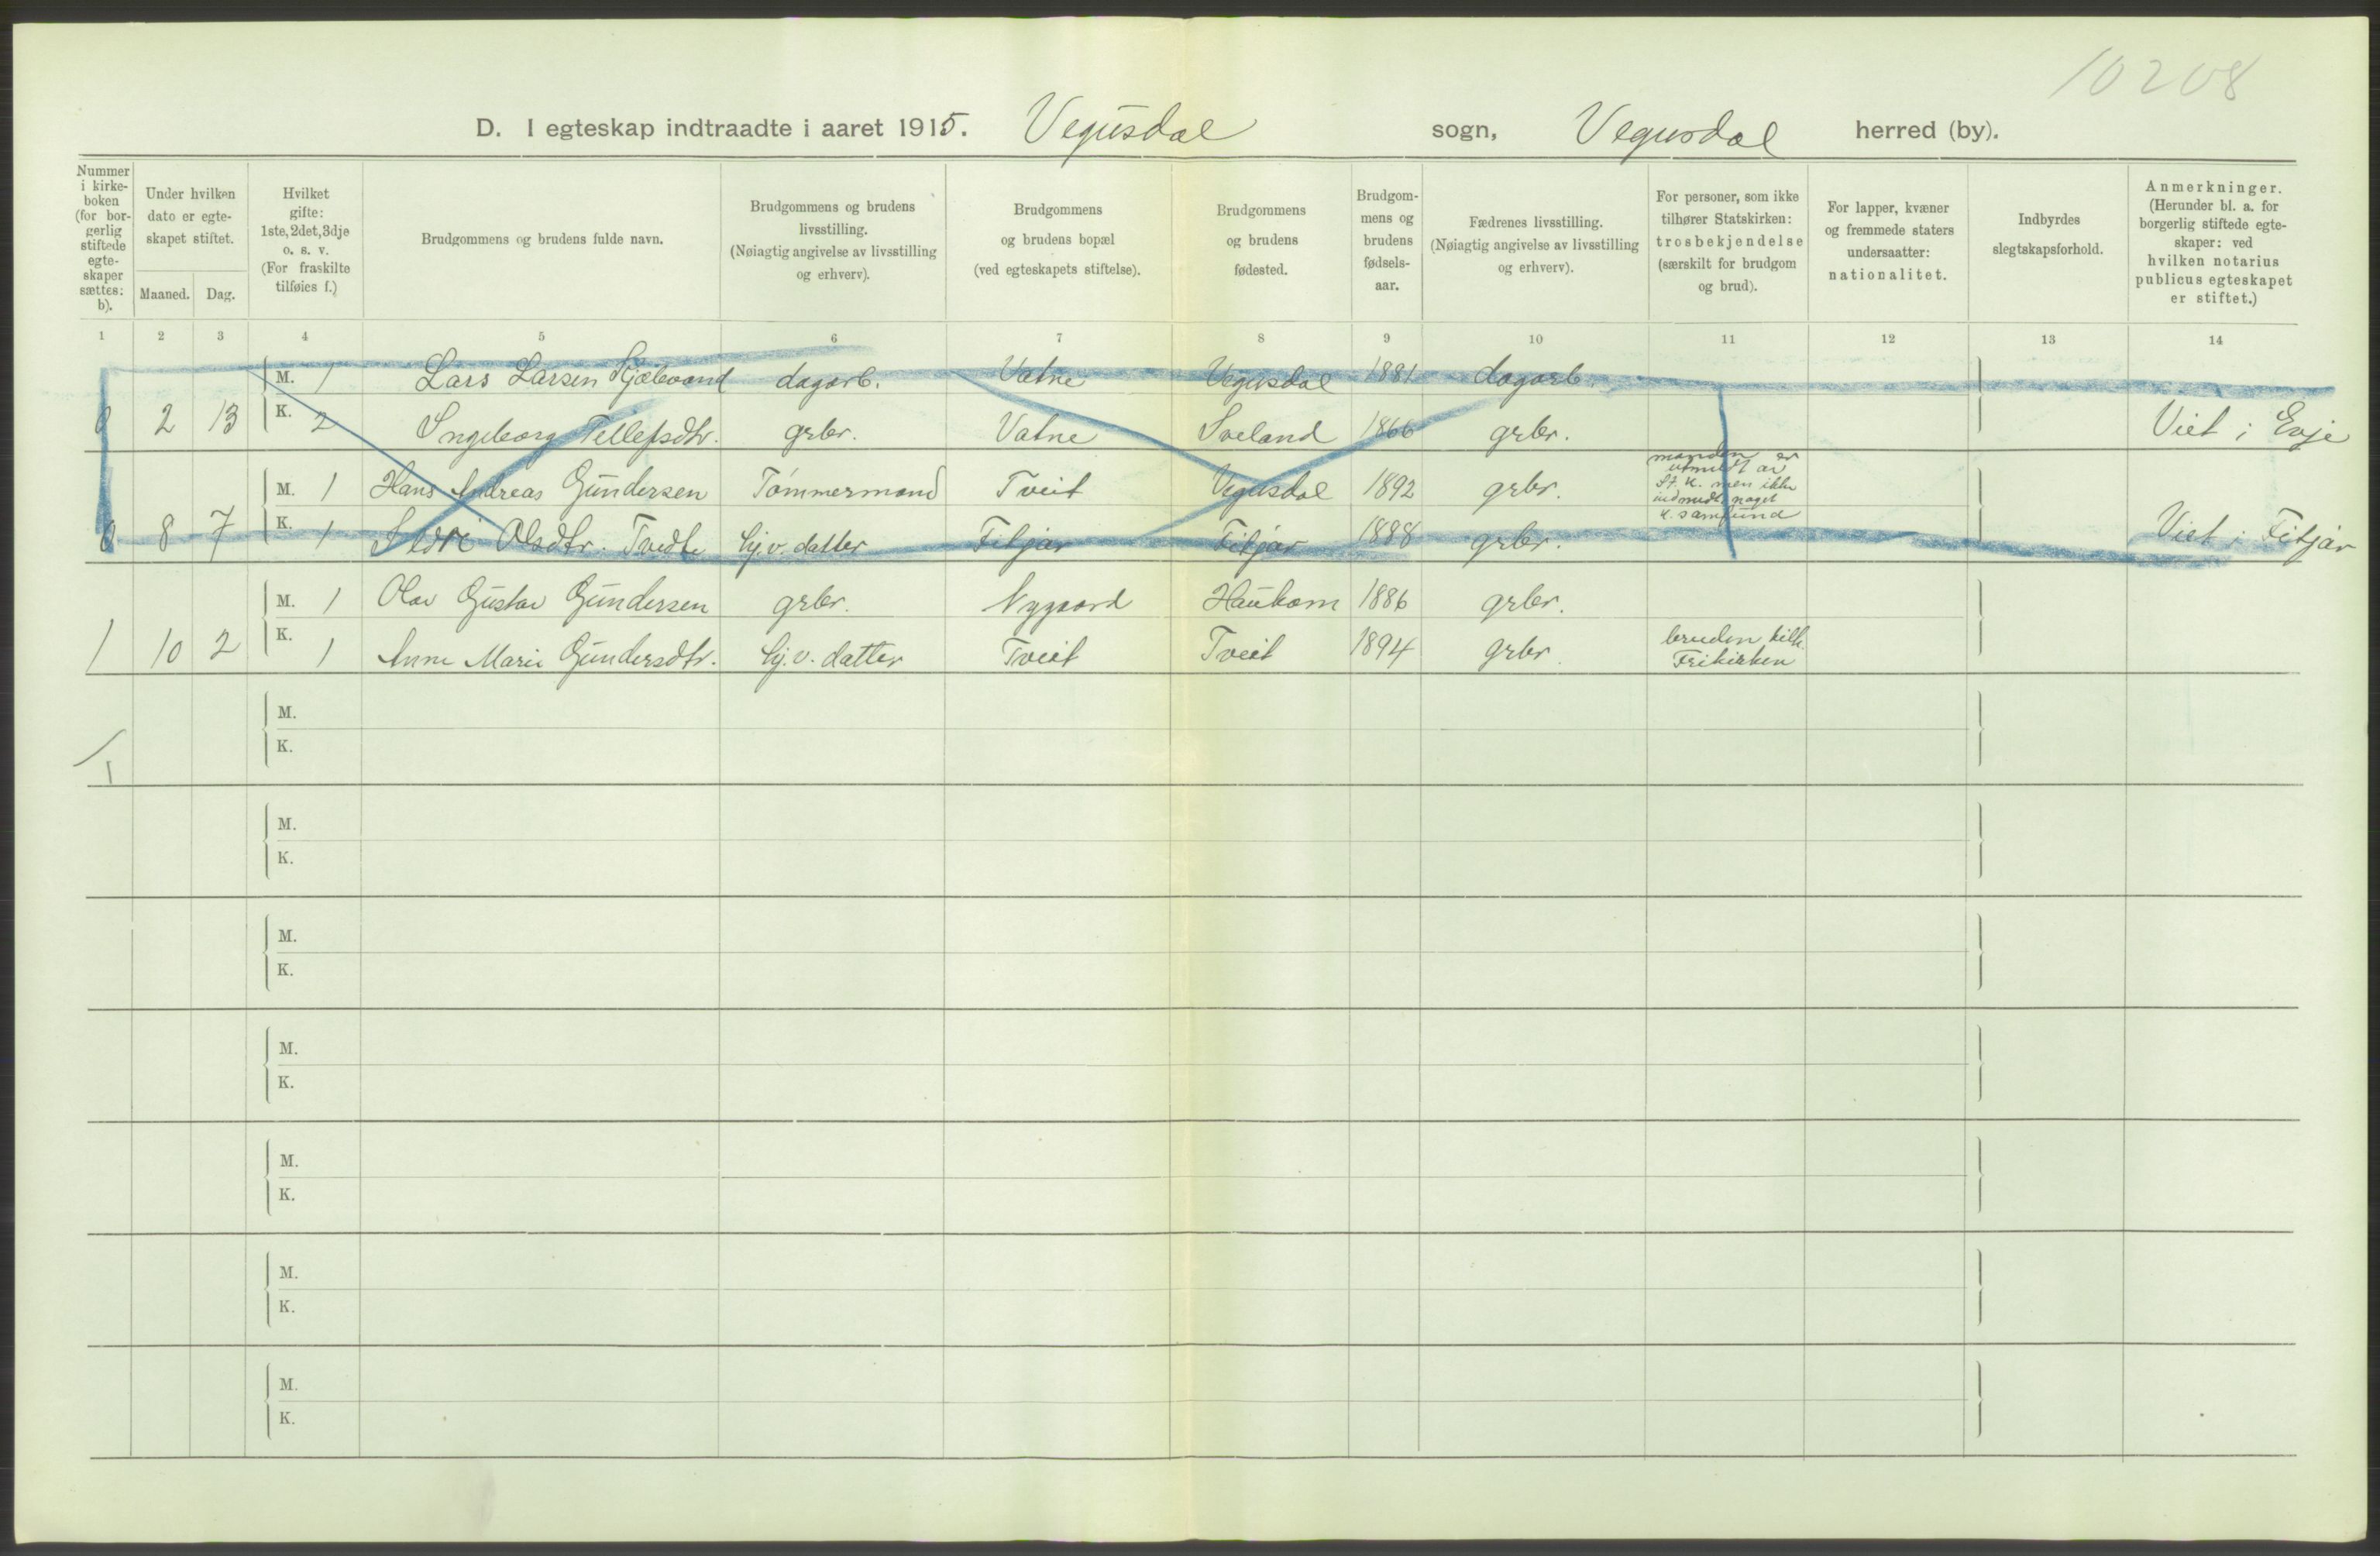 10208
D. I egteskap indtraadte i aaret 1915. Vegusdal sogn, Vegusdal herred (by).
Nummer i kirke-boken (for bor-gerlig stiftede egte-skaper sættes: b).
Under hvilken dato er egte-skapet stiftet.
Maaned. Dag.
Hvilket gifte: 1ste, 2det, 3dje o. s. v. (For fraskilte tilføies f.)
Brudgommens og brudens fulde navn.
Brudgommens og brudens livsstilling. (Nøiagtig angivelse av livsstilling og erhverv).
Brudgommens og brudens bopæl (ved egteskapets stiftelse).
Brudgommens og brudens fødested.
Brudgom-mens og brudens fødsels-aar.
Fædrenes livsstilling. (Nøiagtig angivelse av livsstilling og erhverv).
For personer, som ikke tilhører Statskirken: trosbekjendelse (særskilt for brudgom og brud).
For lapper, kvæner og fremmede staters undersaatter: nationalitet.
Indbyrdes slegtskapsforhold.
Anmerkninger. (Herunder bl. a. for borgerlig stiftede egte-skaper: ved hvilken notarius publicus egteskapet er stiftet.)
1 2 3 4 5 6 7 8 9 10 11 12 13 14
M. 1 Lars Larsen dagarb. Vatne Vegusdal 1881 dagarb.
0 2 13 K. 2 Ingeborg Tellefsdtr. grbr. Vatne Sveland 1866 grbr. Viet i Evje
M. 1 Hans Andreas Gundersen Tømmermand Tveit Vegusdal 1892 grbr. manden er utmeldt av St. K. men ikke indmeldt noget K. samfund
0 8 7 K. 1 Olsdtr. Tvedte hj. v. datter Fitjar Fitjar 1888 grbr. Viet i Fitjar
M. 1 Olav Gustav Gundersen grbr. Nygaard Haukom 1886 grbr.
1 10 2 K. 1 Anne Marie Gundersdtr. hj. v. datter Tveit Tveit 1894 grbr. bruden tilh. Frikirken
M.
K.
1
M.
K.
M.
K.
M.
K.
M.
K.
M.
K.
M.
K.